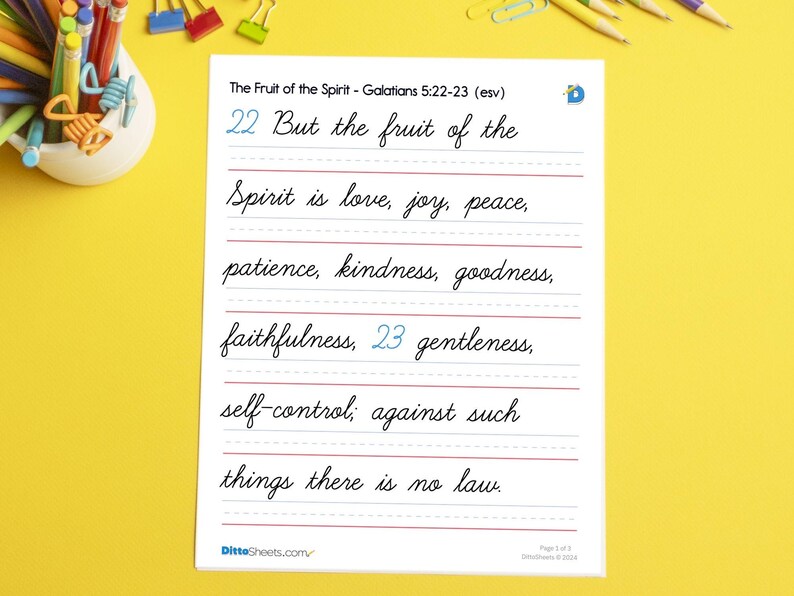 The Fruit of the Spirit - Galatians 5:22-23 (esv)
22 But the fruit of the
Spirit is love, joy, peace,
patience, kindness, goodness,
faithfulness, 23 gentleness,
self-control; against such
things there is no law.
DittoSheets.com
Page 1 of 3
DittoSheets © 2024